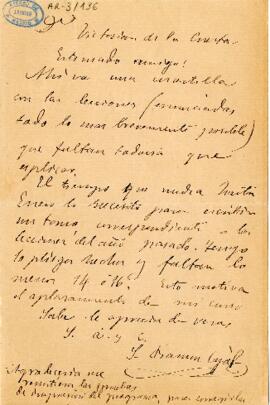 AR-3/136
Victorian de la Cuesta
Estimado amigo:
Ahí va una cuartilla
con las lecciones (enunciadas
todo lo mas brevemente posible)
que faltan todavía que
explicar.
El tiempo que media hasta
Enero lo necesito para escribir
un tomo correspondiente a las
lecciones del año pasado. Tengo
pliegos hechos y faltan lo
menos 14 ó 16. Esto motiva
el aplazamiento de mi curso
Sabe le aprecia de veras
S. a. y c.
S. Ramón Cajal
Agradeceria me
las pruebas
del programa, para corregirlas